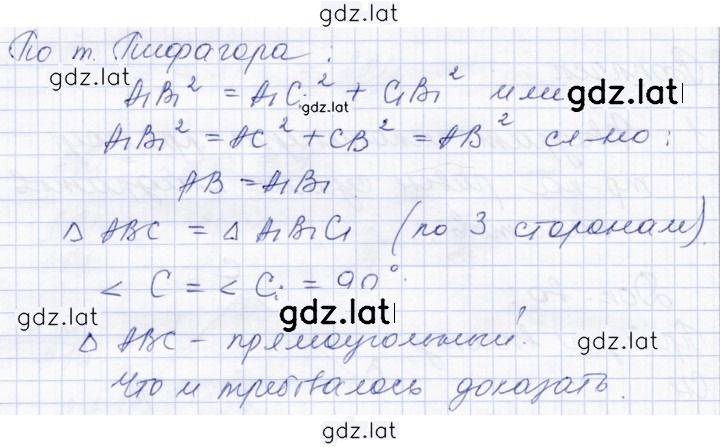 gdz.lat
По т. Пифагора:
gdz.lat
A₁B₁² = A₁C₁² + C₁B₁² или
gdz.lat
gdz.lat
A₁B₁² = AC² + CB² = AB² сл-но:
AB = A₁B₁
△ ABC = △ A₁B₁C₁ (по 3 сторонам).
< C = < C₁ = 90°.
gdz.lat
gdz.lat
gdz.lat
△ ABC - прямоугольный.
Что и требовалось доказать.
gdz.lat